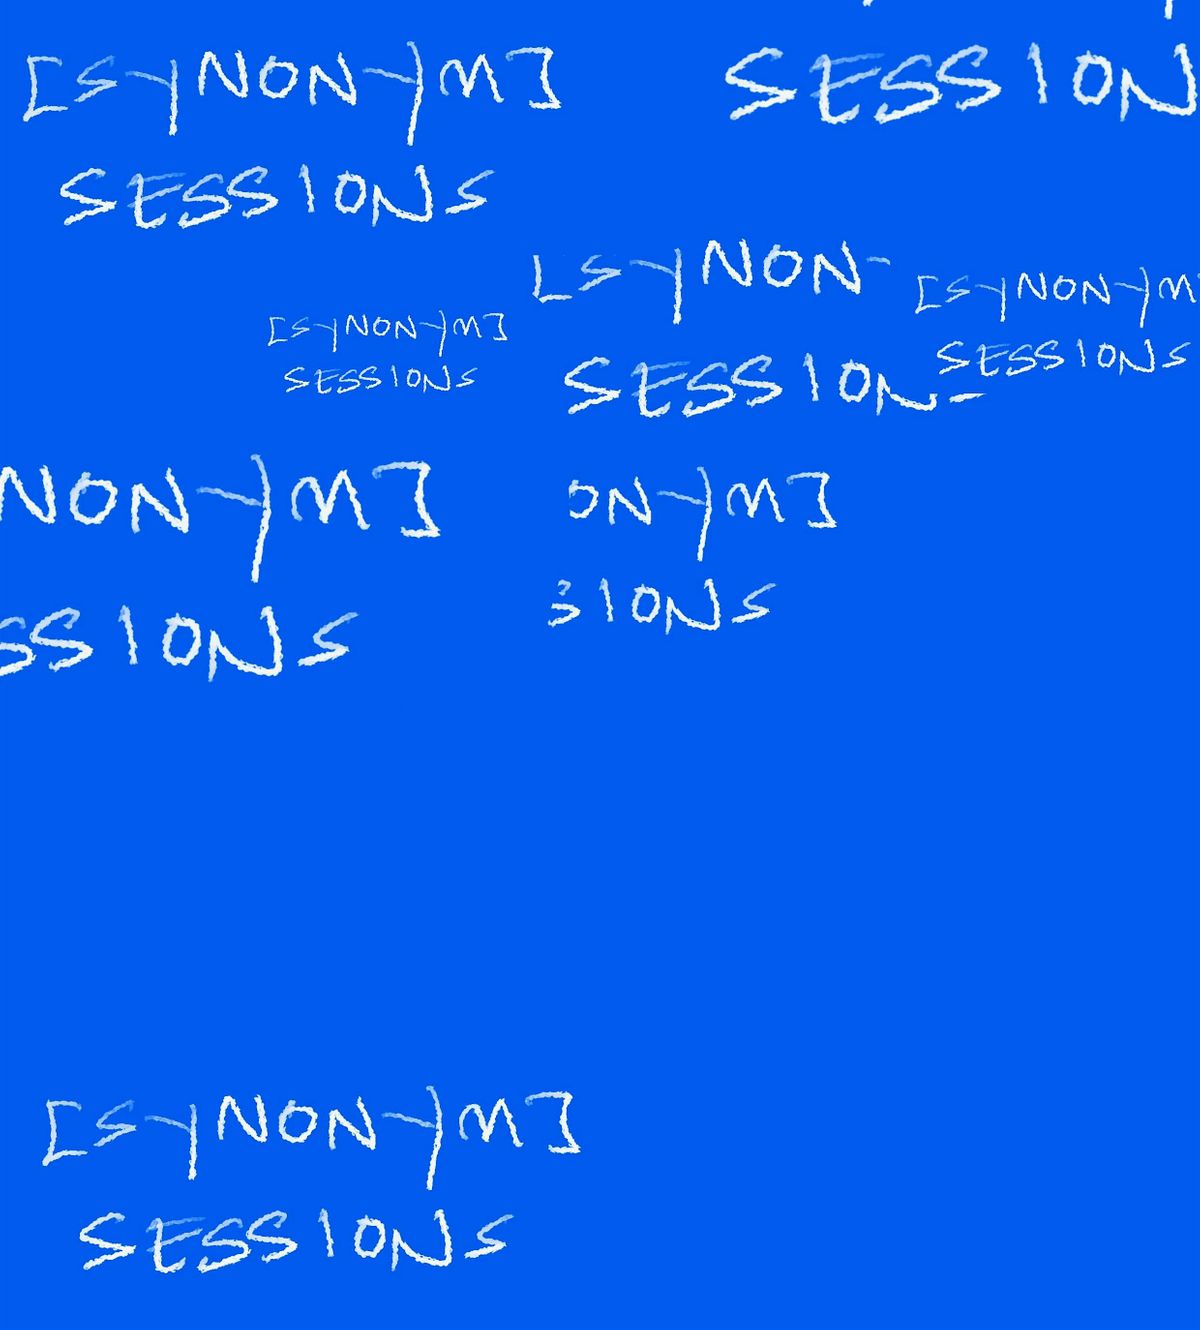 [SYNONYM]
SESSIONS
SESSION
[SYNON
SESSION
[SYNONYM
SESSIONS
[SYNONYM]
SESSIONS
NONYM]
SSIONS
ONYM]
SIONS
[SYNONYM]
SESSIONS